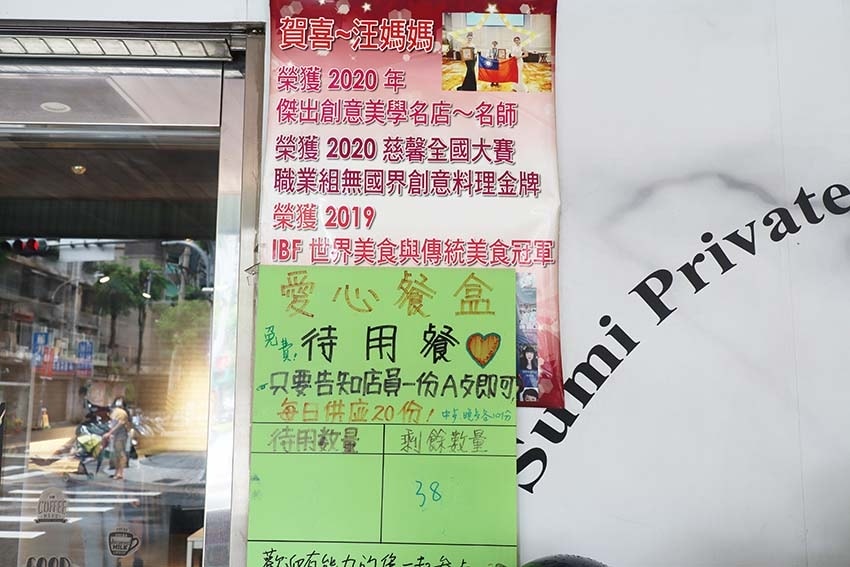 賀喜~汪媽媽
榮獲 2020 年
傑出創意美學名店～名師
榮獲 2020 慈馨全國大賽
職業組無國界創意料理金牌
榮獲 2019
IBF 世界美食與傳統美食冠軍
愛心餐盒
免費! 待用餐
只要告知店員一份A夛即可
每日供应20份!
待用数量 剩餘数量
38
Sumi Private
COFFEE
MILK